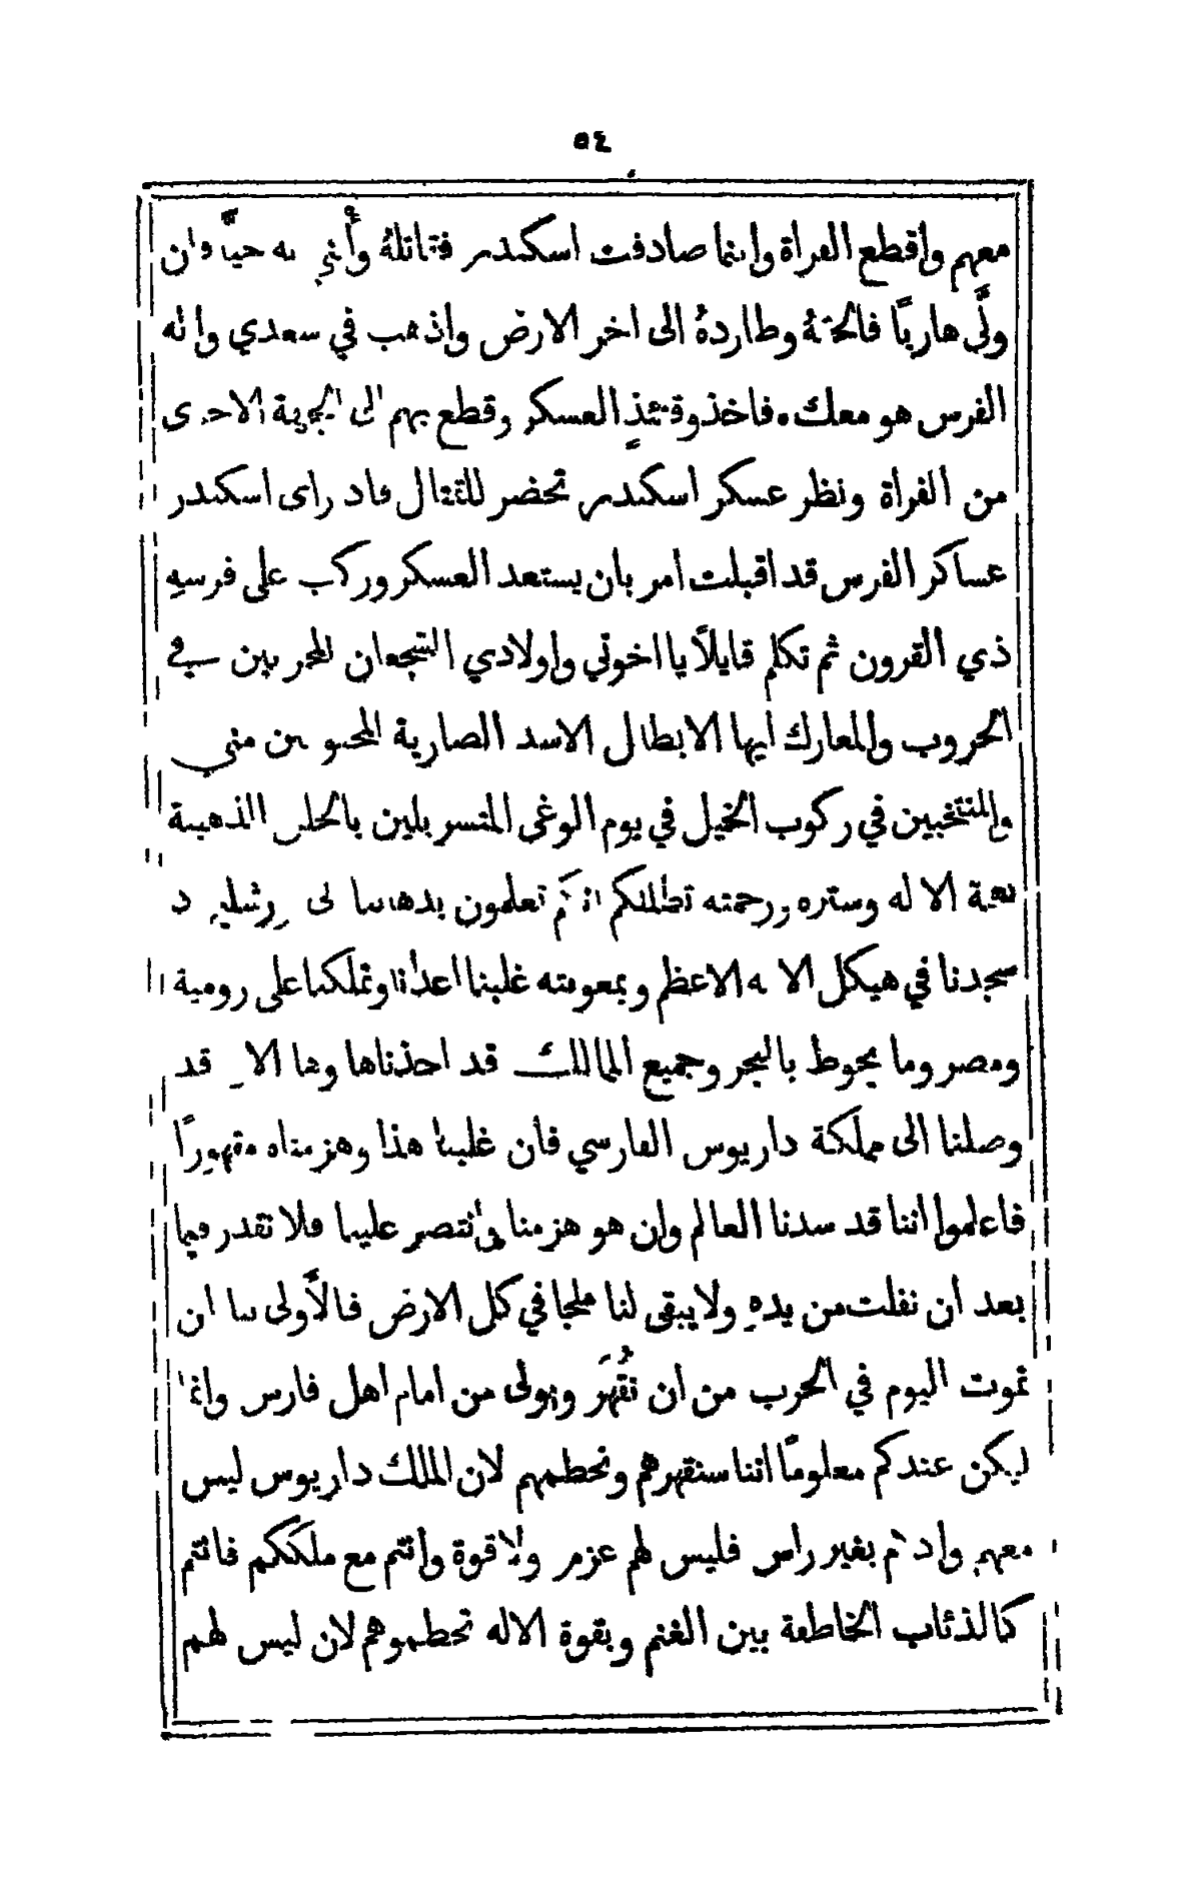 ٥٤
معهم واقطع الفراة واينما صادفت اسكندر فقاتله وأتني به حيًّا وان
ولَّى هاربًا فالحقهُ وطاردهُ الى اخر الارض واذهب في سعدي واله
الفرس هو معك • فاخذ وقتئذٍ العسكر وقطع بهم الى الجهة الاخرى
من الفراة ونظر عسكر اسكندر تحضر للقتال فاد راى اسكندر
عساكر الفرس قد اقبلت امر بان يستعد العسكر وركب على فرسهِ
ذي القرون ثم تكلم قايلاً يا اخوتي واولادي الشجعان المجربين في
الحروب والمعارك ايها الابطال الاسد الضارية المحبوبين مني
والمنتخبين في ركوب الخيل في يوم الوغى المتسربلين بالحلل الذهبية
الاله وستره ورحمته تظللكم تعلمون بذهابنا الى
سجدنا في هيكل الاله الاعظم وبمعونته غلبنا اعدانا وتملكنا على رومية
ومصر وما يحوط بالبحر وجميع الممالك قد اخذناها وها الان قد
وصلنا الى مملكة داريوس الفارسي فان غلبنا هذا وهزمناه مقهورًا
فاعلموا اننا قد سدنا العالم وان هو هزمنا وانتصر علينا فلا نقدر فيما
بعد ان نفلت من يدهِ ولا يبقى لنا ملجا في كل الارض فالأَولى بنا ان
نموت اليوم في الحرب من ان نُقهَر ونولى من امام اهل فارس وانما
ليكن عندكم معلومًا اننا سنقهرهم ونحطمهم لان الملك داريوس ليس
معهم واذ هم بغير راس فليس لهم عزم ولا قوة وانتم مع ملككم فانتم
كالذئاب الخاطفة بين الغنم وبقوة الاله تحطموهم لان ليس لهم